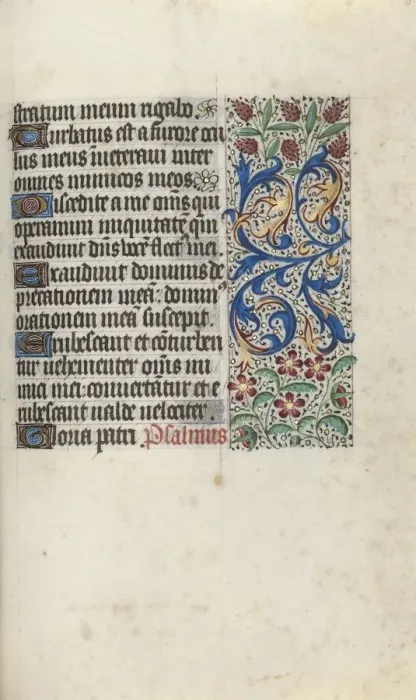 stratum meum rigabo.
Turbatus est a furore ocu
lus meus inveteravi inter
omnes inimicos meos.
Discedite a me oms̄ qui
operamini iniquitatē qm̄
exaudivit dn̄s vocē flet⁹ mei.
Exaudivit dominus de
precationem meā: domin⁹
orationem meā suscepit.
Erubescant et cōturben
tur vehementer oms̄ ini
mici mei: convertātur et e
rubescant valde velociter.
Gloria patri. Psalmus